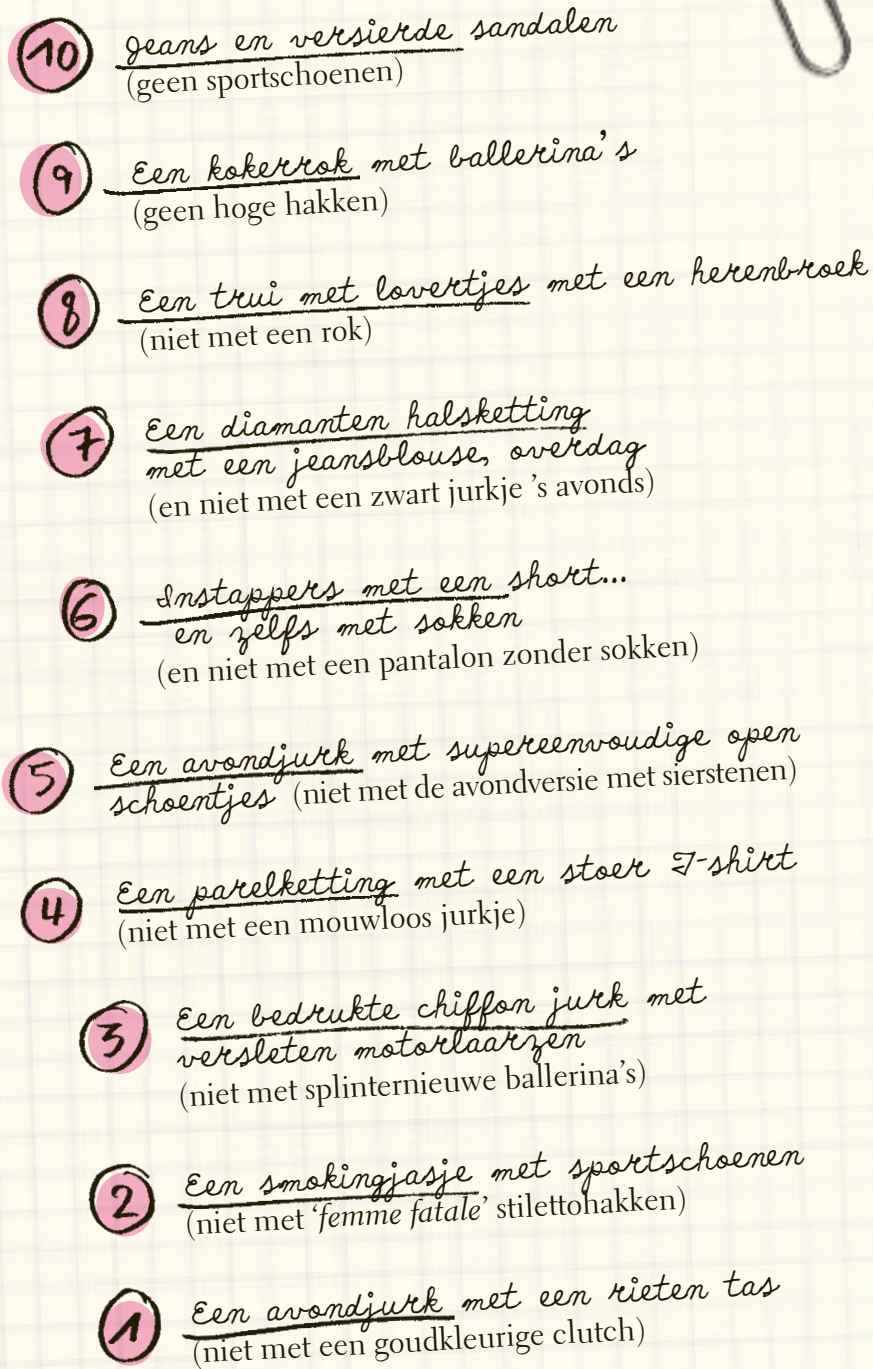 10 Jeans en versierde sandalen
(geen sportschoenen)
9 Een kokerrok met ballerina's
(geen hoge hakken)
8 Een trui met lovertjes met een herenbroek
(niet met een rok)
7 Een diamanten halsketting
met een jeansblouse, overdag
(en niet met een zwart jurkje 's avonds)
6 Instappers met een short...
en zelfs met sokken
(en niet met een pantalon zonder sokken)
5 Een avondjurk met supereenvoudige open
schoentjes (niet met de avondversie met sierstenen)
4 Een parelketting met een stoer T-shirt
(niet met een mouwloos jurkje)
3 Een bedrukte chiffon jurk met
versleten motorlaarzen
(niet met splinternieuwe ballerina's)
2 Een smokingjasje met sportschoenen
(niet met 'femme fatale' stilettohakken)
1 Een avondjurk met een rieten tas
(niet met een goudkleurige clutch)